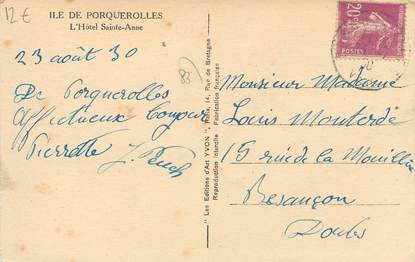 12 €
ILE DE PORQUEROLLES
L'Hôtel Sainte-Anne
23 août 30
De Porquerolles
Affectueux
Pierrette J.
83
"Les Editions d'Art YVON", Paris, 14, Rue de Bretagne
Reproduction Interdite Fabrication française
20c
POSTES
Monsieur Madame
Louis
15 rue de la Mouillère
Besançon
Doubs